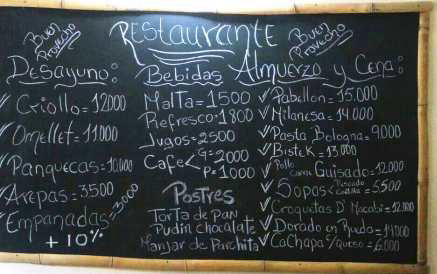 Restaurante
Buen
Provecho
Buen
Provecho
Desayuno:
✓ Criollo = 12000
✓ Omellet = 11000
✓ Panquecas = 10000
✓ Arepas = 3500
✓ Empanadas = 3.000
+ 10%
Bebidas
Malta = 1500
Refresco = 1800
Jugos = 2500
Cafe < G = 2000
P = 1000
Postres
Torta de pan
Pudin chocalate
Manjar de Parchita
Almuerzo y Cena:
✓ Pabellon = 15.000
✓ Milanesa = 14.000
✓ Pasta Bologna = 9000
✓ Bistek = 13000
✓ Pollo
Carne Guisado = 12.000
✓ Sopas < Pescado
= 5500
✓ Croquetas D' Macabi = 12.000
✓ Dorado en Rueda = 14000
✓ CaChapa c/queso = 6.000